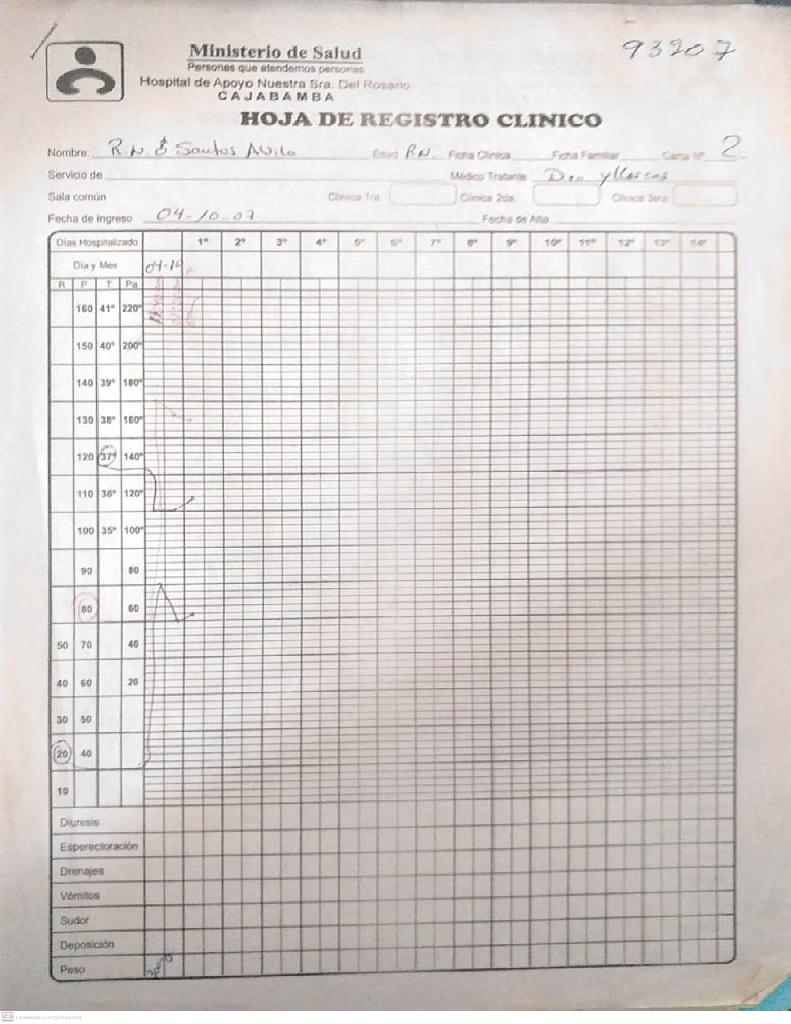 93207
Ministerio de Salud
Personas que atendemos personas
Hospital de Apoyo Nuestra Sra. Del Rosario
CAJABAMBA
HOJA DE REGISTRO CLINICO
Nombre: R.N. Santos Avila Edad RN. Ficha Clínica Ficha Familiar Cama Nº 2
Servicio de Médico Tratante
Sala común Clínica 1ra. Clínica 2da. Clínica 3era
Fecha de ingreso 04-10-07 Fecha de Alta
Días Hospitalizado 1º 2º 3º 4º 5º 6º 7º 8º 9º 10º 11º 12º 13º 14º
Día y Mes 04-10
R P T Pa
160 41º 220º
150 40º 200º
140 39º 180º
130 38º 160º
120 37º 140º
110 36º 120º
100 35º 100º
90 80
80 60
50 70 40
40 60 20
30 50
20 40
10
Diuresis
Esperectoración
Drenajes
Vómitos
Sudor
Deposición
Peso
CS